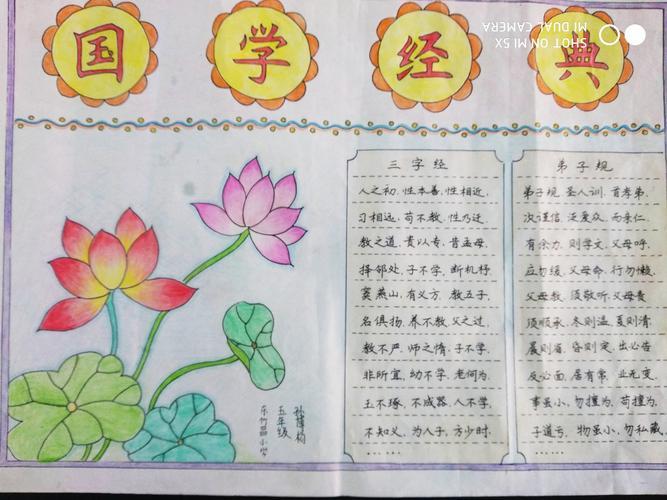 国学经典
SHOT ON MI 5X
MI DUAL CAMERA
三字经
人之初，性本善，性相近，
习相远，苟不教，性乃迁，
教之道，贵以专，昔孟母，
择邻处，子不学，断机杼，
窦燕山，有义方，教五子，
名俱扬，养不教，父之过，
教不严，师之惰，子不学，
非所宜，幼不学，老何为，
玉不琢，不成器，人不学，
不知义，为人子，方少时，
……
弟子规
弟子规，圣人训，首孝弟，
次谨信，泛爱众，而亲仁，
有余力，则学文，父母呼，
应勿缓，父母命，行勿懒，
父母教，须敬听，父母责，
须顺承，冬则温，夏则凊，
晨则省，昏则定，出必告，
反必面，居有常，业无变，
事虽小，勿擅为，苟擅为，
子道亏，物虽小，勿私藏，
……
五年级
小学